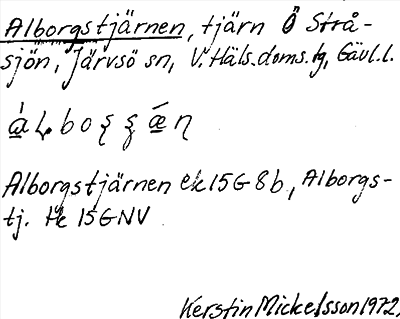 Alborgstjärnen, tjärn Ö Strå-
sjön, Järvsö sn, V. Häls. doms. tg, Gävl. l.
Alborgstjärnen ek 15G 8b, Alborgs-
tj. Hk 15G NV
Kerstin Mickelsson 1972.